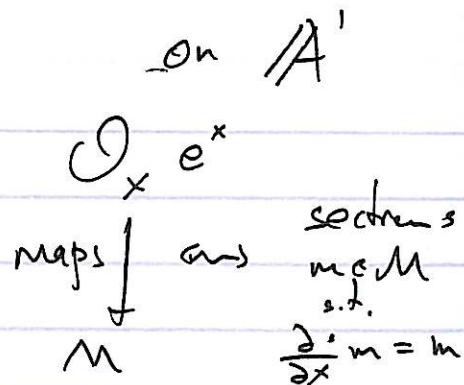 On 𝔸¹
𝒪ₓ eˣ
maps ↓ ⟿ sections
m ∈ M
s.t.
M ∂/∂x · m = m